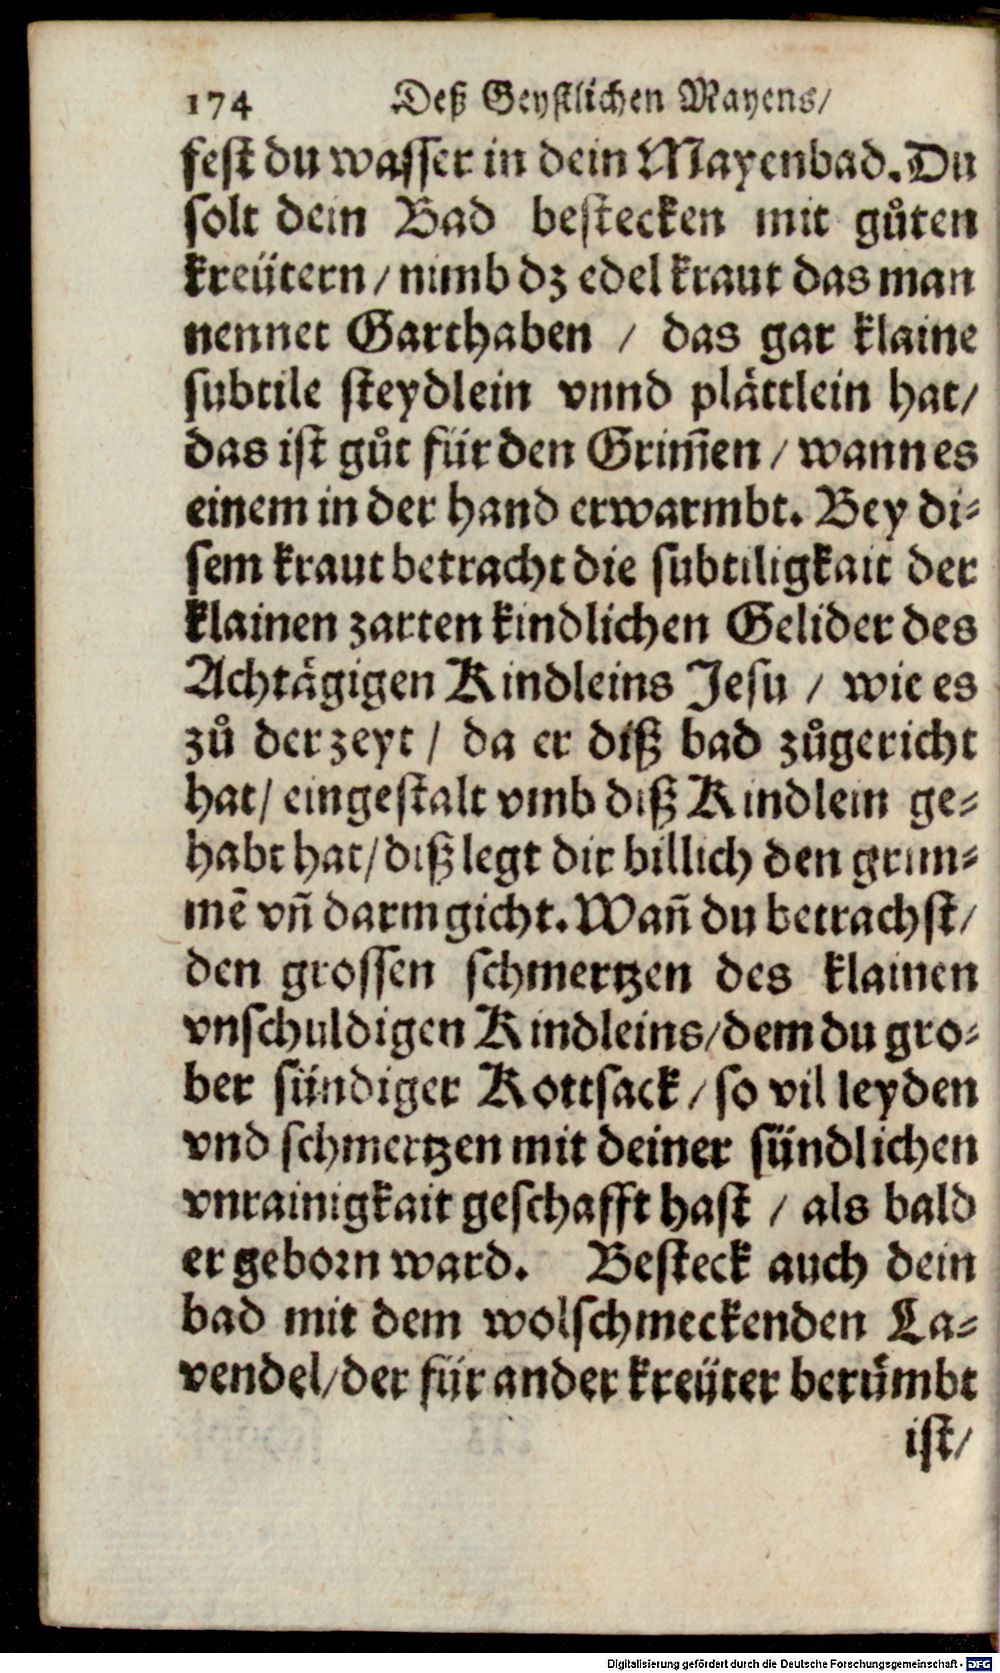 174 Deß Geystlichen Mayens/
fest du wasser in dein Mayenbad. Du
solt dein Bad bestecken mit gůten
kreütern / nimb dz edel kraut das man
nennet Garthaben / das gar klaine
subtile steydlein vnnd plättlein hat/
das ist gůt für den Grim̃en / wann es
einem in der hand erwarmbt. Bey di⸗
sem kraut betracht die subtiligkait der
klainen zarten kindlichen Gelider des
Achtägigen Kindleins Jesu / wie es
zů der zeyt / da er diß bad zůgericht
hat/ ein gestalt vmb diß Kindlein ge⸗
habt hat/ diß legt dir billich den grim⸗
mẽ vñ darmgicht. Wañ du betrachst/
den grossen schmertzen des klainen
vnschuldigen Kindleins/ dem du gro⸗
ber sündiger Kottsack / so vil leyden
vnd schmertzen mit deiner sündlichen
vnrainigkait geschafft hast / als bald
er geborn ward. Besteck auch dein
bad mit dem wolschmeckenden La⸗
vendel/ der für ander kreüter berümbt
ist/
Digitalisierung gefördert durch die Deutsche Forschungsgemeinschaft - DFG